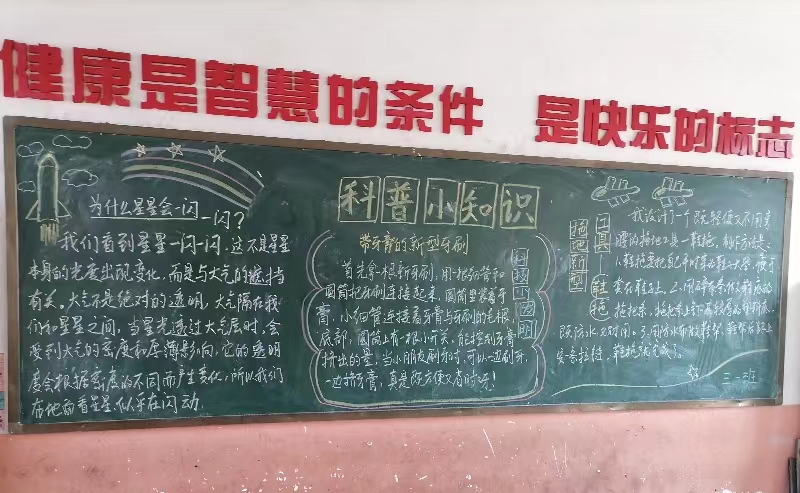 健康是智慧的条件 是快乐的标志
为什么星星会一闪
一闪？
我们看到星星一闪一闪，这不是星星
本身的光度出现变化，而是与大气的遮挡
有关。大气不是绝对的透明，大气隔在我
们和星星之间，当星光透过大气层时，会
受到大气的密度和厚薄影响，它的透明
度会根据密度的不同而产生变化，所以我们
在地面看星星，似乎在闪动
科普小知识
带牙膏的新型牙刷
首先拿一根新牙刷，用一根软管和
圆筒把牙刷连接起来，圆筒里装着牙
膏，小细管连接着牙膏与牙刷的毛根
底部，圆筒上有一根小开关，能控制牙膏
挤出的量，当小朋友刷牙时，可以一边刷牙，
一边挤牙膏，真是既方便又省时
科技小发明
新型拖把
工具
鞋拖
我设计了一个既轻便又不用弯
腰的拖地工具一鞋拖，制作方法是
既防水又耐用
鞋拖就完成了。
三一班